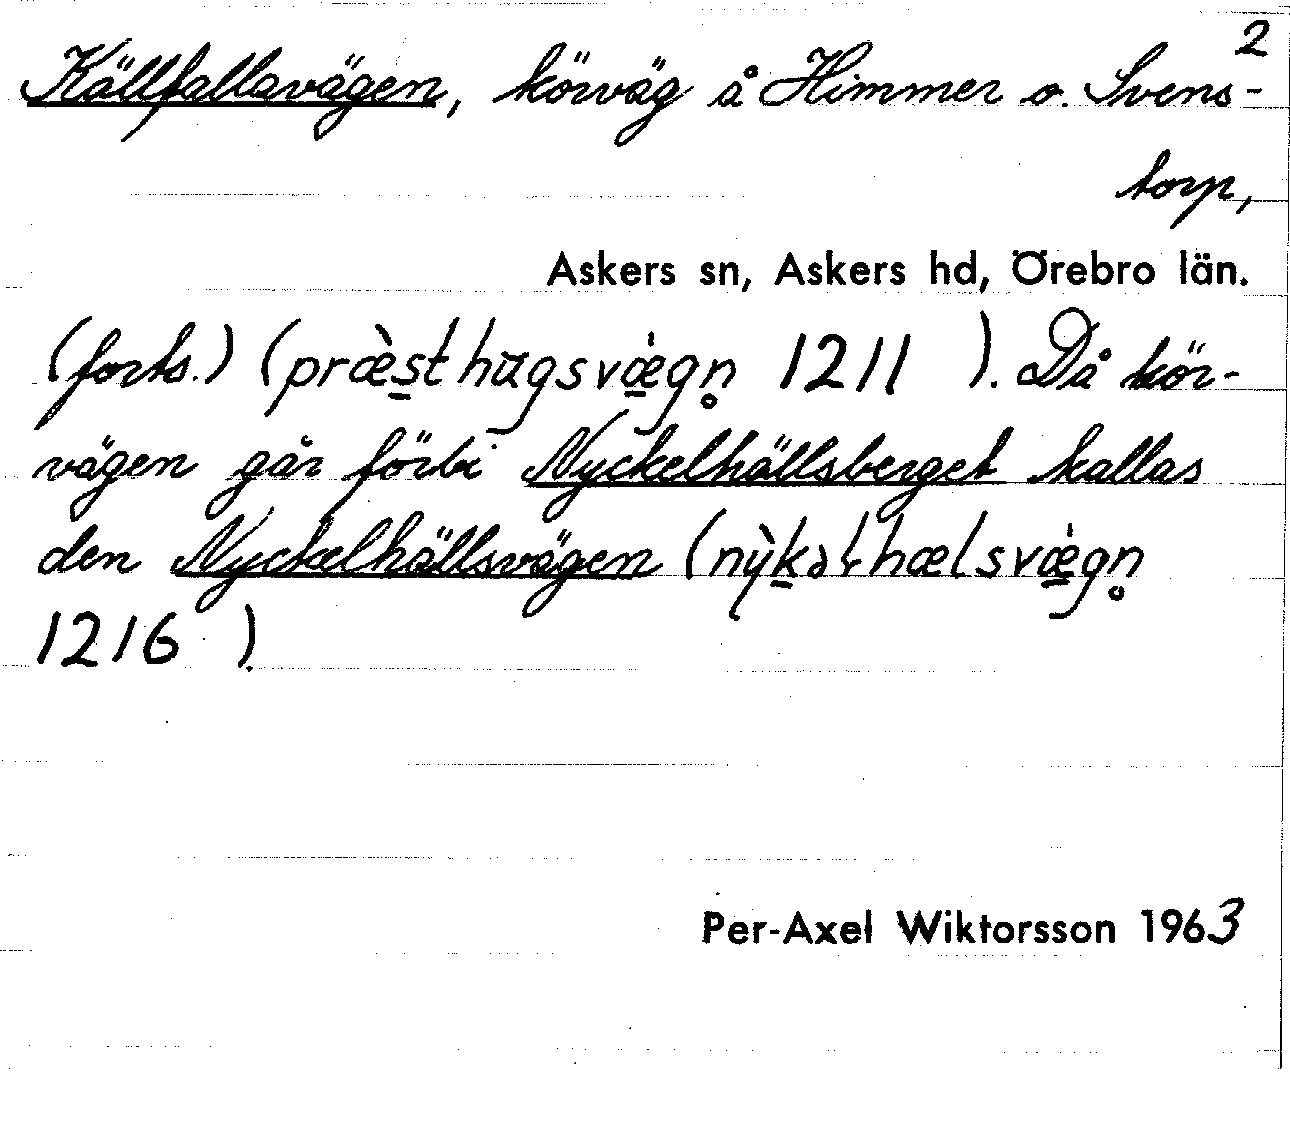 2
Källfallavägen, körväg å Himmer o. Svens-
torp,
Askers sn, Askers hd, Örebro län.
(forts.) (præ̀s̲thūgsvæ̲̇gn̥ 1211 ). Då kör-
vägen går förbi Nyckelhällsberget kallas
den Nyckelhällsvägen (nỳk̲əɫhælsvæ̲̇gn̥
1216 ).
Per-Axel Wiktorsson 1963